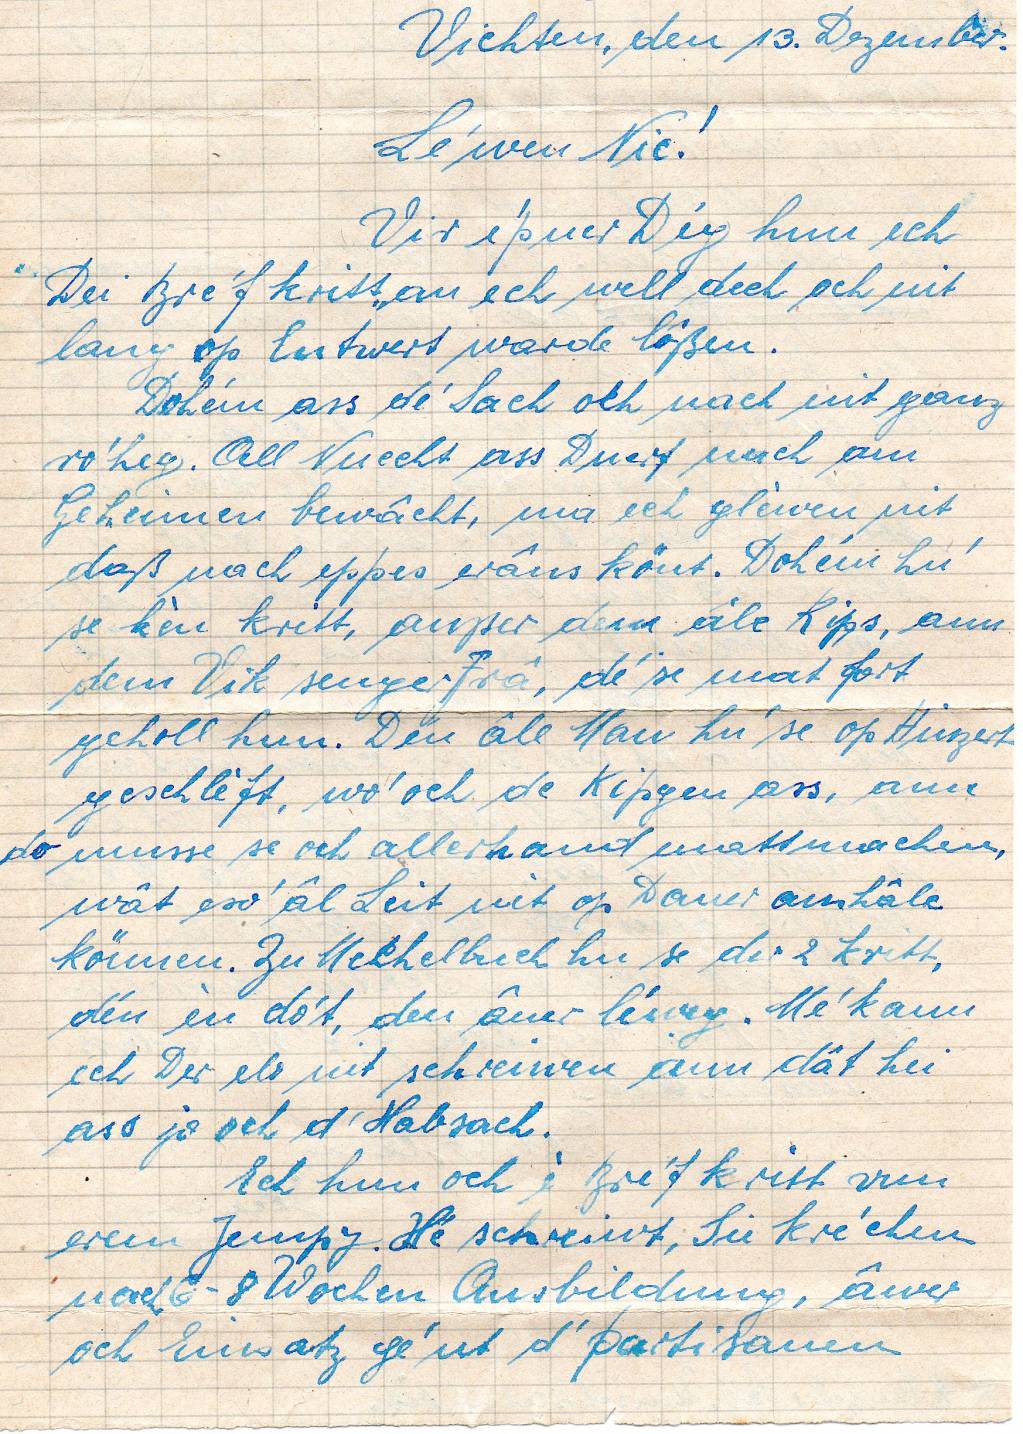 Vichten, den 13. Dezember.
Lé'wen Nic!
Vir e'puer Dég hun ech
Dei Bre'f kritt, an ech well dech och nit
lang op Entwert warde lôßen.
Dohém ass dé Sach och nach nit ganz
ro'heg. All Nuecht ass Duerf nach am
Geheimen bewâcht, ma ech gléwen nit
daß nach eppes erâus könt. Dohém hu'
se kèn kritt, außer dem âle Kips, ann
dem Vik senger Frâ, dé'se mat fort
geholl hun. Den âle Man hu'se op Hinzert
geschléft, wo' och de Kipgen ass, ann
do musse se och allerhand mattmachen,
wât eso' âl Leit nit op Dauer aushâle
können. Zu Mechelbuch hu se der 2 kritt,
dén èn do't, den âner léweg. Mé' kann
ech Der elo nit schreiwen ann dât hei
ass jo och d'Habsach.
Ech hun och è Bre'f kritt vun
erem Jempy. Hé schreiwt, Si kre'chen
nach 6-8 Wochen Ausbildung, âwer
och Einsatz gé'nt d'Partisanen